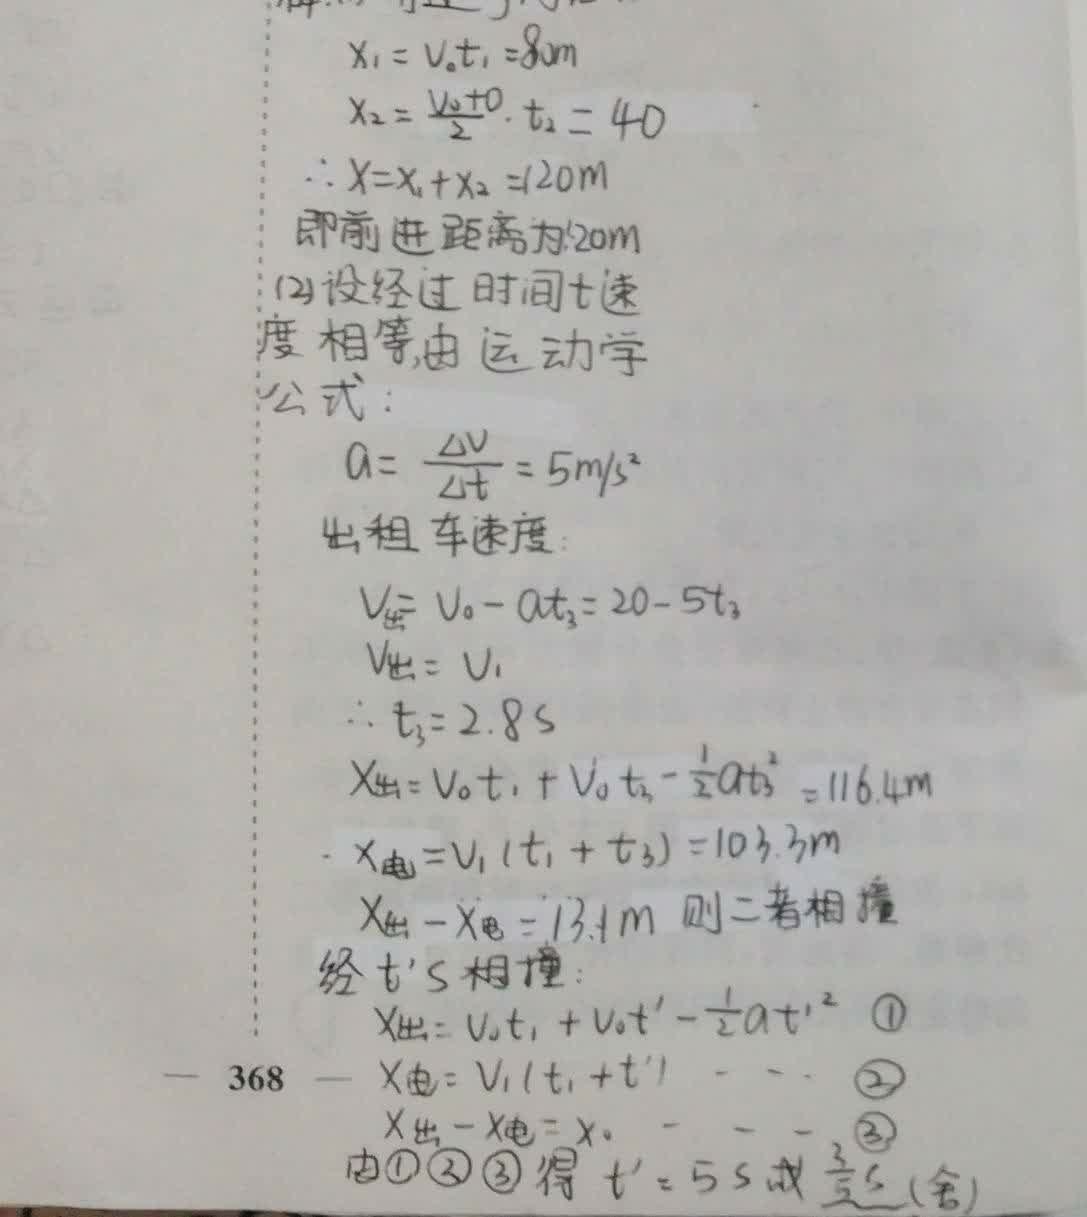 x₁ = v₀t₁ = 80m
x₂ = (v₀+0)/2 · t₂ = 40
∴ x = x₁ + x₂ = 120m
即前进距离为120m
(2)设经过时间t速
度相等,由运动学
公式:
a = Δv/Δt = 5m/s²
出租车速度:
v出 = v₀ - at₃ = 20 - 5t₃
v出 = v₁
∴ t₃ = 2.8s
x出 = v₀t₁ + v₀t₃ - ½at₃² = 116.4m
x电 = v₁(t₁ + t₃) = 103.3m
x出 - x电 = 13.1m 则二者相撞
经t's相撞:
x出 = v₀t₁ + v₀t' - ½at'² ①
368 x电 = v₁(t₁ + t') - - - ②
x出 - x电 = x₀ - - - ③
由①②③得 t' = 5s或 s(舍)